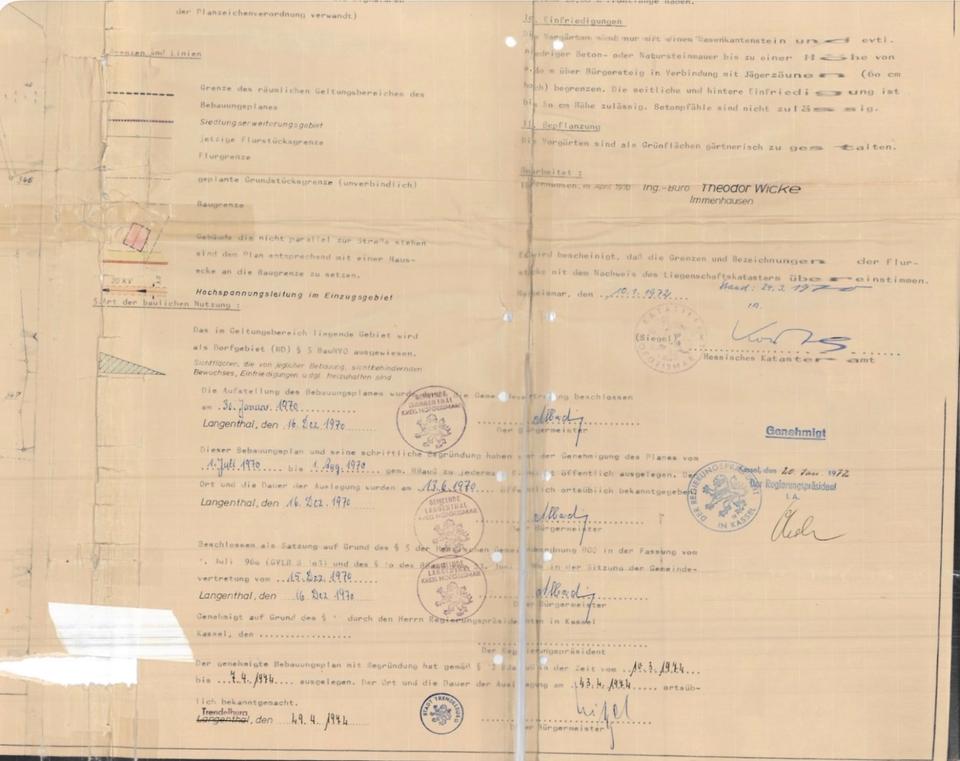 der Planzeichenverordnung verwandt)
Grenzen und Linien
Grenze des räumlichen Geltungsbereiches des
Bebauungsplanes
Siedlungserweiterungsgebiet
jetzige Flurstücksgrenze
Flurgrenze
geplante Grundstücksgrenze (unverbindlich)
Baugrenze
Gebäude die nicht parallel zur Straße stehen
sind dem Plan entsprechend mit einer Haus-
ecke an die Baugrenze zu setzen.
20 KV
Hochspannungsleitung im Einzugsgebiet
Art der baulichen Nutzung :
Das im Geltungsbereich liegende Gebiet wird
als Dorfgebiet (MD) § 5 BauNVO ausgewiesen.
Sichtflächen, die von jeglicher Bebauung, sichtbehindernden
Bewuchses, Einfriedigungen u.dgl. freizuhalten sind
Einfriedigungen
Die Vorgärten sind nur mit einem Rasenkantenstein und evtl.
niedriger Beton- oder Natursteinmauer bis zu einer Höhe von
über Bürgersteig in Verbindung mit Jägerzäunen (60 cm
hoch) begrenzen. Die seitliche und hintere Einfriedigung ist
bis cm Höhe zulässig. Betonpfähle sind nicht zulässig.
Bepflanzung
Die Vorgärten sind als Grünflächen gärtnerisch zu gestalten.
Bearbeitet :
im April 1970 Ing.-Büro Theodor Wicke
Immenhausen
Es wird bescheinigt, daß die Grenzen und Bezeichnungen der Flur-
stücke mit dem Nachweis des Liegenschaftskatasters übereinstimmen.
Hofgeismar, den 10.1.1972 Stand: 24.3.1970
(Siegel)
Hessisches Kataster amt
Die Aufstellung des Bebauungsplanes wurde die Gemeindevertretung beschlossen
am 30. Januar 1970
Langenthal, den 16. Dez. 1970
GEMEINDE LANGENTHAL KREIS HOFGEISMAR
Der Bürgermeister
Genehmigt
Kassel, den 20. Jan. 1972
Der Regierungspräsident
I. A.
DER REGIERUNGSPRÄSIDENT IN KASSEL
Dieser Bebauungsplan und seine schriftliche Begründung haben vor der Genehmigung des Planes vom
1. Juli 1970 bis 1. Aug. 1970 gem. BBauG zu jedermanns Einsicht öffentlich ausgelegen. Der
Ort und die Dauer der Auslegung wurden am 13.6.1970 öffentlich ortsüblich bekanntgegeben
Langenthal, den 16. Dez. 1970
GEMEINDE LANGENTHAL KREIS HOFGEISMAR
Der Bürgermeister
Beschlossen als Satzung auf Grund des § 5 der Hessischen Gemeindeordnung HGO in der Fassung vom
Juli in der Sitzung der Gemeinde-
vertretung vom 15. Dez. 1970
Langenthal, den 16. Dez. 1970
GEMEINDE LANGENTHAL KREIS HOFGEISMAR
Der Bürgermeister
Genehmigt auf Grund des § durch den Herrn Regierungspräsidenten in Kassel
Kassel, den
Der Regierungspräsident
Der genehmigte Bebauungsplan mit Begründung hat gemäß § in der Zeit vom 10.3.1974
bis 7.4.1974 ausgelegen. Der Ort und die Dauer der Auslegung am ortsüb-
lich bekanntgemacht.
Trendelburg
Langenthal, den 29.4.1974
STADT TRENDELBURG
Der Bürgermeister